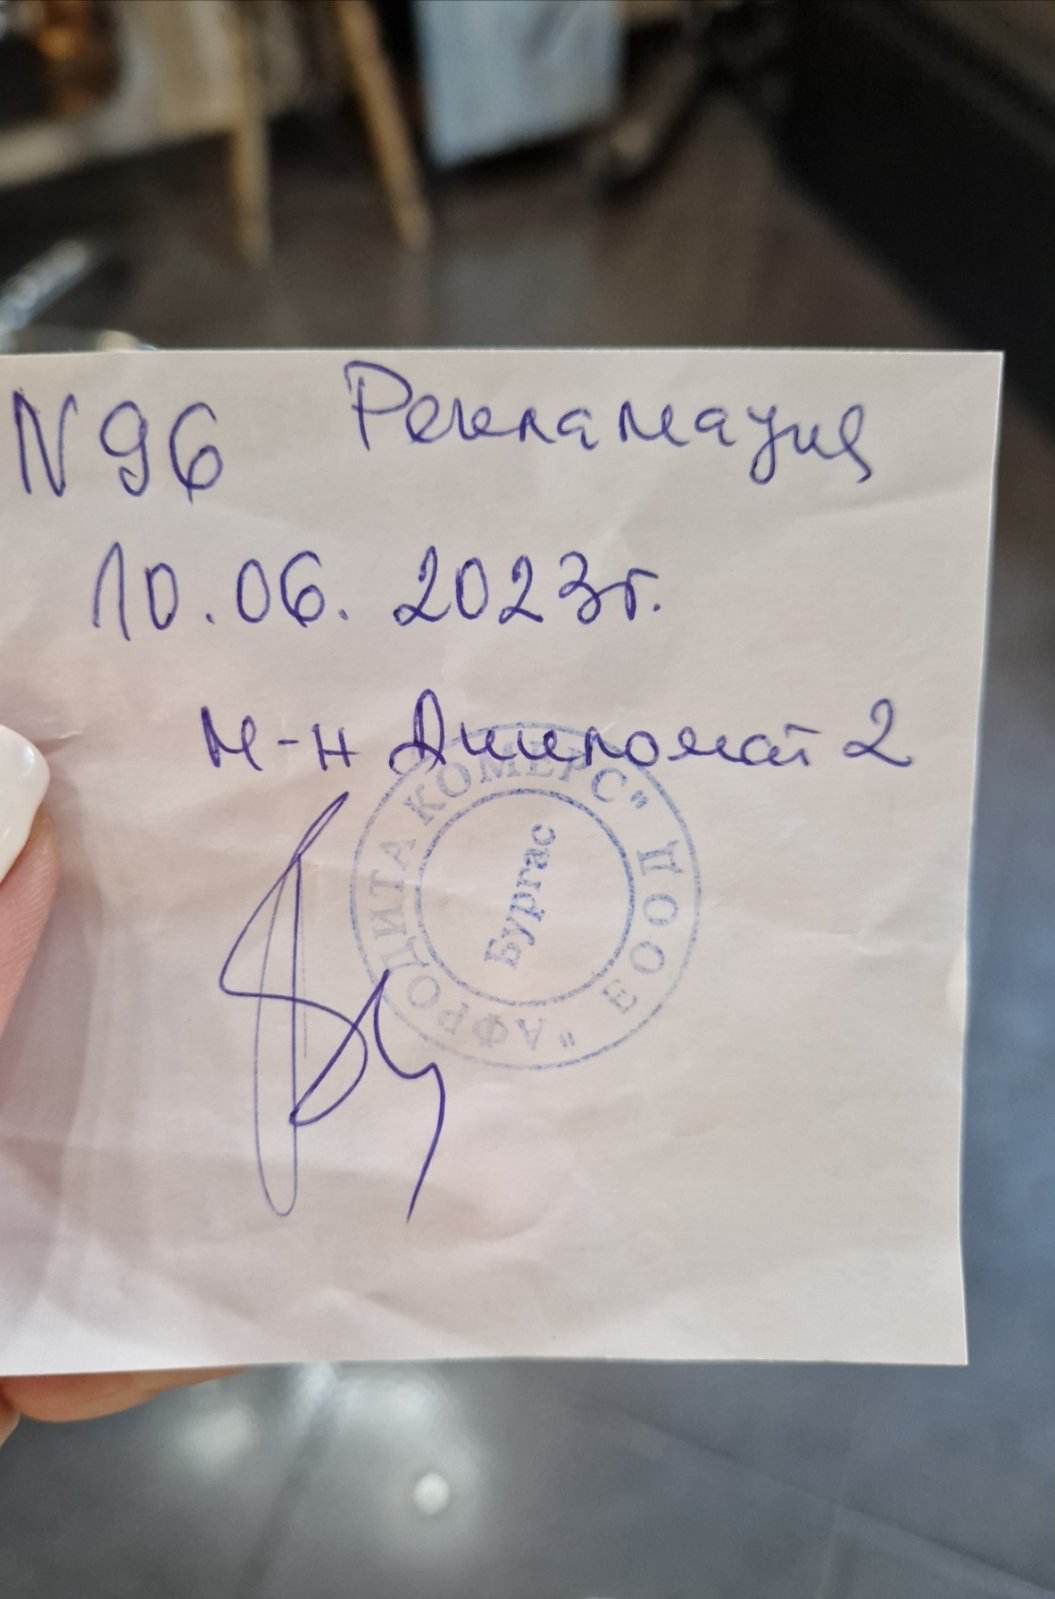 N 96 Рекламация
10.06.2023г.
м-н Дипломат 2
"АФРОДИТА КОМЕРС" ЕООД
Бургас